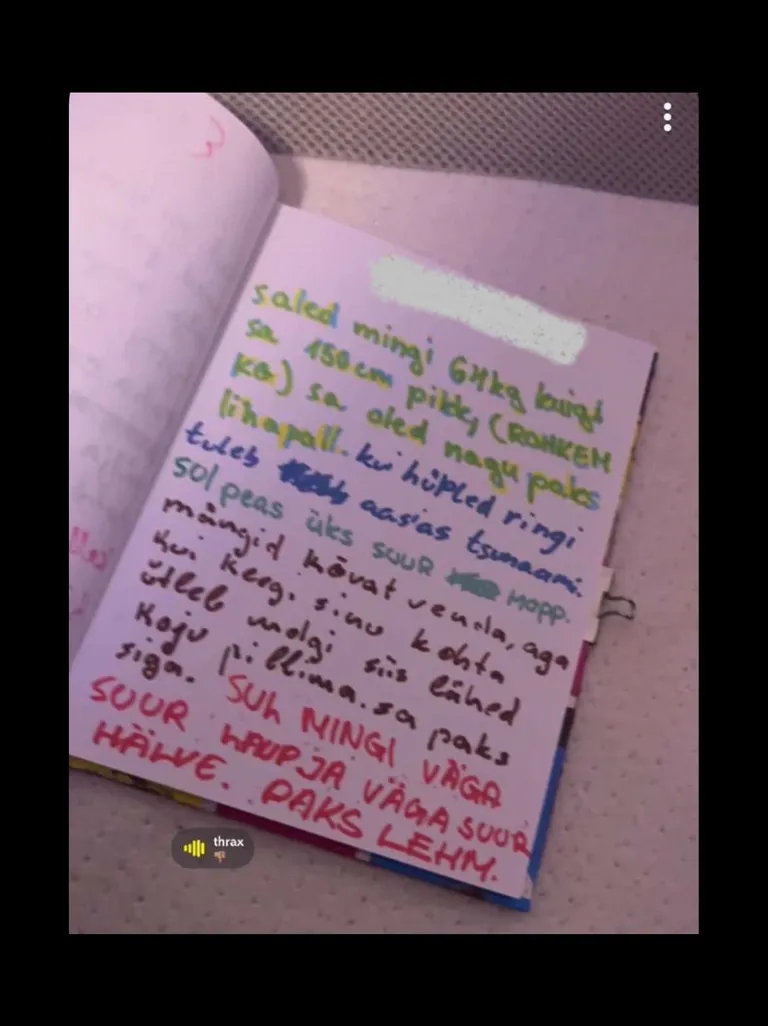 saled mingi 64kg kuigi
sa 150cm pikk, (ROHKEM
KG) sa oled nagu paks
lihapall. kui hüpled ringi
tuleb aasias tsunaami.
sol peas üks suur MOPP.
mängid kõvat venda, aga
kui keegi sinu kohta
ütleb midagi siis lähed
koju pillima. sa paks
siga. SUL MINGI VÄGA
SUUR LAUP JA VÄGA SUUR
HÄLVE. PAKS LEHM.
thrax